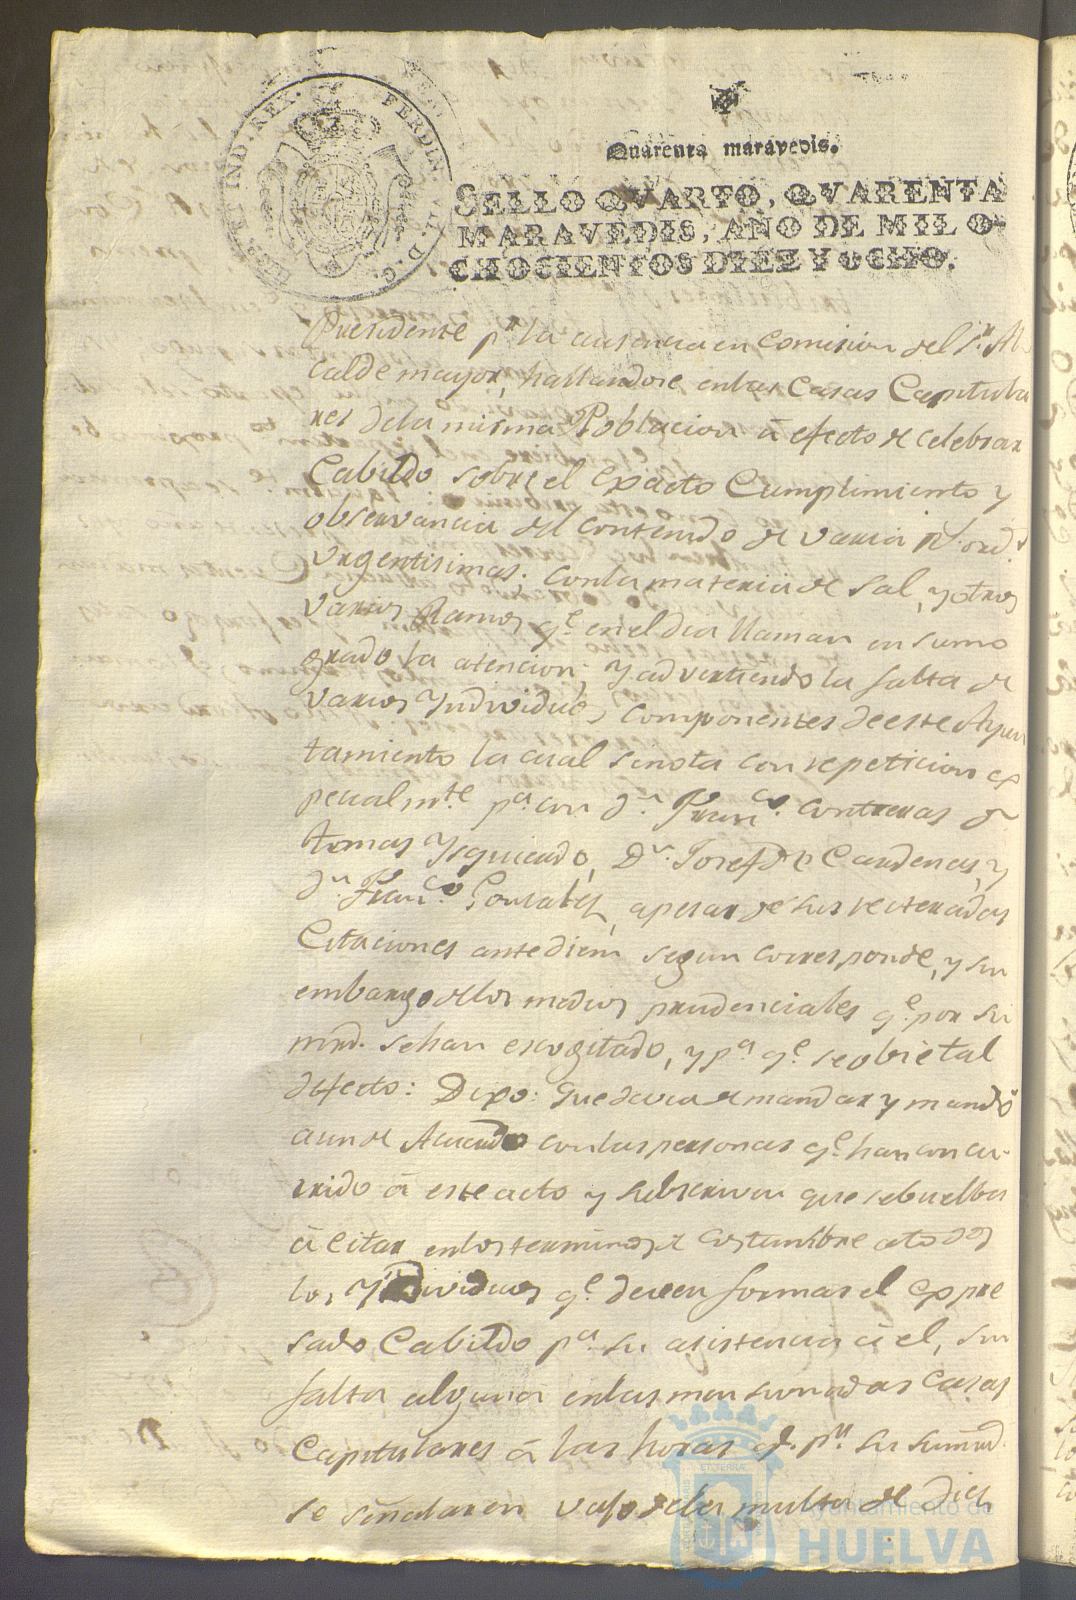 HISP. ET IND. REX. FERDIN. VII. D. G.
Quarenta maravedis.
SELLO QVARTO, QVARENTA
MARAVEDIS, AÑO DE MIL O-
CHOCIENTOS DIEZ Y OCHO.
Presidente pr. la ausencia en Comision del Sr. Al
calde mayor, hallandose en las Casas Capitula
res de la misma Poblacion á efecto de celebrar
Cabildo sobre el Exacto Cumplimiento y
observancia del contenido de varias Rs. ords.
urgentisimas; con la materia de Sal, y otros
varios Ramos qe. en el dia llaman en sumo
grado la atencion; y advirtiendo la falta de
varios Yndividuos componentes de este Ayun
tamiento la cual se nota con repeticion es
pecialmte. pa. con Dn. Franco. Contreras Dn
tomas Ysquierdo, Dn. Josef de Cardenas, y
Dn. Franco. Gonzalez, apesar de sus reiteradas
Citaciones antediem segun corresponde, y sin
embargo de los medios prudenciales qe. por su
mrd. se han escogitado, y pa. qe. se obie tal
defecto: Dixo: Que devia de mandar y mandó
aun de Acuerdo con las personas qe. han concu-
rrido á este acto y subscriven que se buelba
á Citar en los terminos de costumbre a todos
los Yndividuos qe. deven formar el Expre
sado Cabildo pa. su asistencia á el, sin
falta alguna en las mencionadas Casas
Capitulares á las horas qe. pr. su mrd.
se señalaren vajo de la multa de diez
Ayuntamiento de
HUELVA